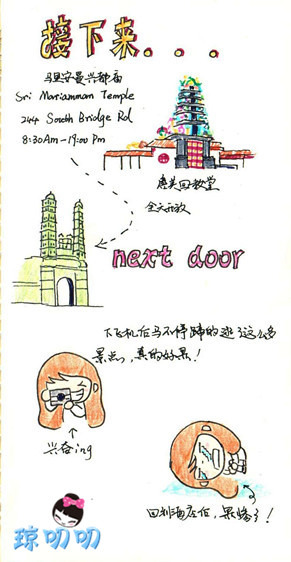 接下来...
马里安曼兴都庙
Sri Mariamman Temple
244 South Bridge Rd
8:30Am-19:00Pm
詹美回教堂
全天开放
next door
下飞机后马不停蹄的逛了这么多
景点,真的好累!
兴奋ing
回到酒店后,累瘫了!
琼叨叨